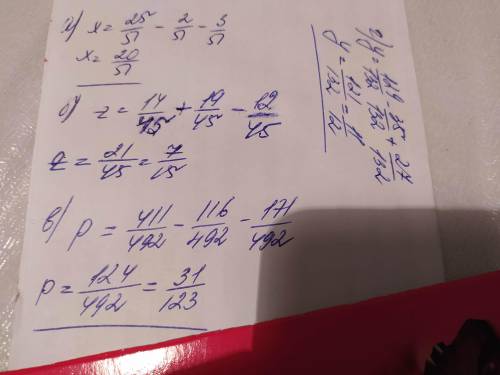 а) x = 25/51 - 2/51 - 3/51
x = 20/51
б) z = 14/45 + 19/45 - 12/45
z = 21/45 = 7/15
в) p = 411/492 - 116/492 - 171/492
p = 124/492 = 31/123
г) y = 119/132 - 25/132 + 27/132
y = 121/132 = 11/12